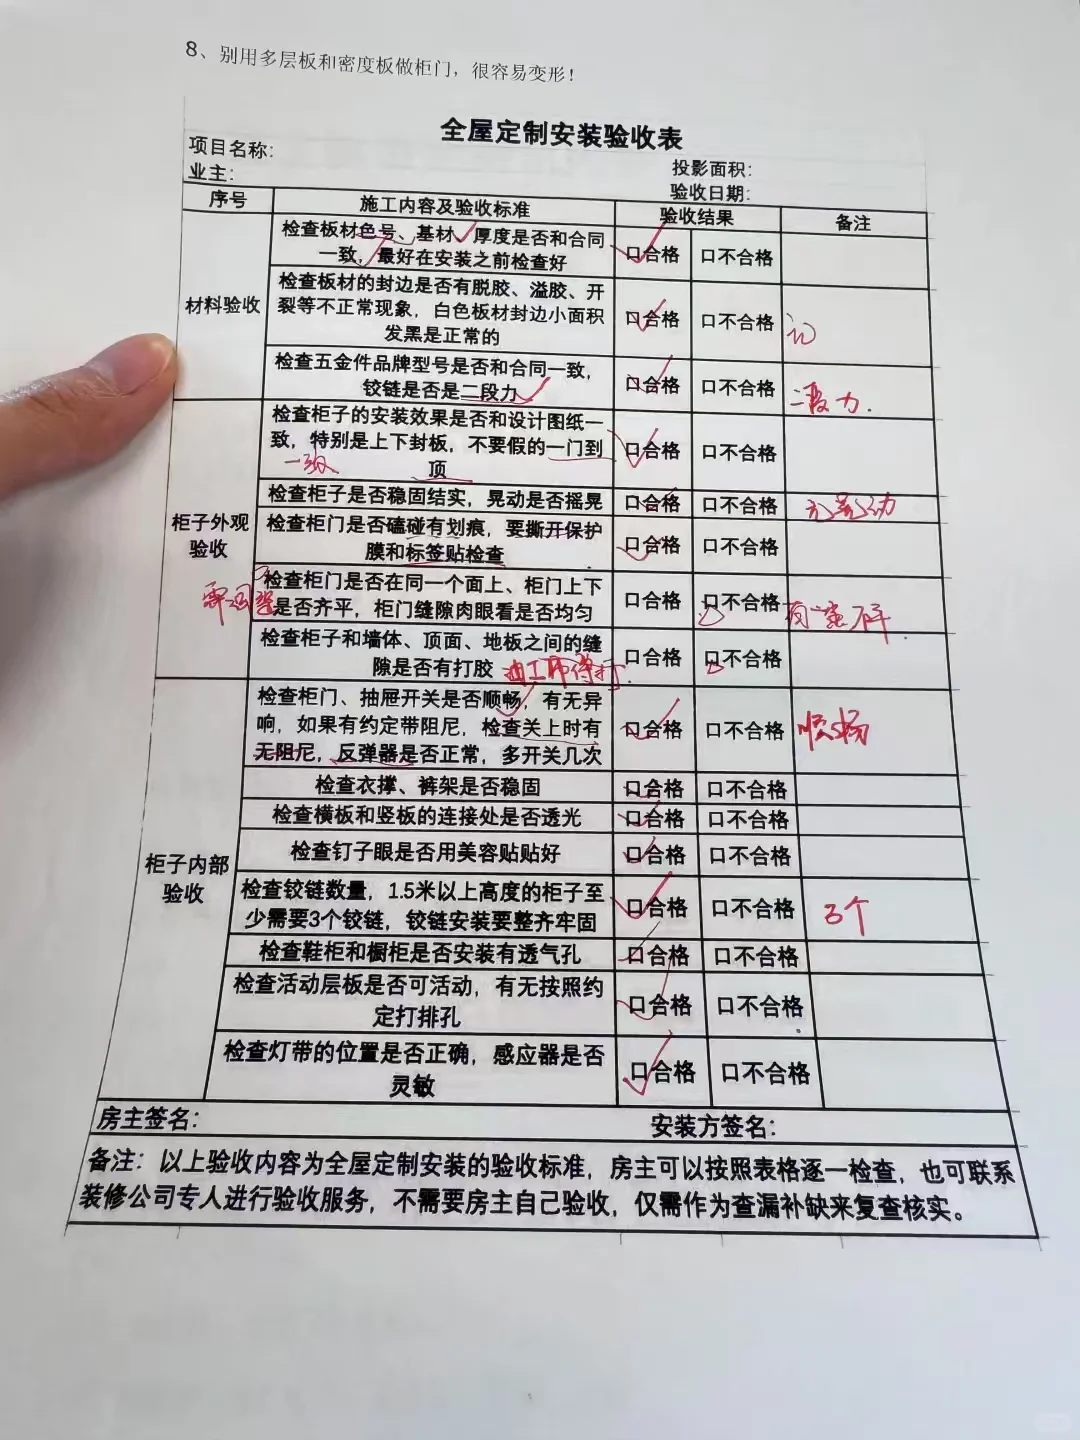 8、别用多层板和密度板做柜门，很容易变形！
全屋定制安装验收表
项目名称：
投影面积：
业主：
验收日期：
序号 施工内容及验收标准 验收结果 备注
材料验收
检查板材色号、基材、厚度是否和合同
一致，最好在安装之前检查好
口合格 口不合格
检查板材的封边是否有脱胶、溢胶、开
裂等不正常现象，白色板材封边小面积
发黑是正常的
口合格 口不合格
检查五金件品牌型号是否和合同一致，
铰链是否是二段力
口合格 口不合格
二段力.
柜子外观
验收
检查柜子的安装效果是否和设计图纸一
致，特别是上下封板，不要假的一门到
顶
一致
口合格 口不合格
检查柜子是否稳固结实，晃动是否摇晃
口合格 口不合格
无晃动
检查柜门是否磕碰有划痕，要撕开保护
膜和标签贴检查
口合格 口不合格
检查柜门是否在同一个面上、柜门上下
是否齐平，柜门缝隙肉眼看是否均匀
口合格 口不合格
检查柜子和墙体、顶面、地板之间的缝
隙是否有打胶
口合格 口不合格
柜子内部
验收
检查柜门、抽屉开关是否顺畅，有无异
响，如果有约定带阻尼，检查关上时有
无阻尼，反弹器是否正常，多开关几次
口合格 口不合格
顺畅
检查衣撑、裤架是否稳固
口合格 口不合格
检查横板和竖板的连接处是否透光
口合格 口不合格
检查钉子眼是否用美容贴贴好
口合格 口不合格
检查铰链数量，1.5米以上高度的柜子至
少需要3个铰链，铰链安装要整齐牢固
口合格 口不合格
3个
检查鞋柜和橱柜是否安装有透气孔
口合格 口不合格
检查活动层板是否可活动，有无按照约
定打排孔
口合格 口不合格
检查灯带的位置是否正确，感应器是否
灵敏
口合格 口不合格
房主签名：
安装方签名：
备注：以上验收内容为全屋定制安装的验收标准，房主可以按照表格逐一检查，也可联系
装修公司专人进行验收服务，不需要房主自己验收，仅需作为查漏补缺来复查核实。